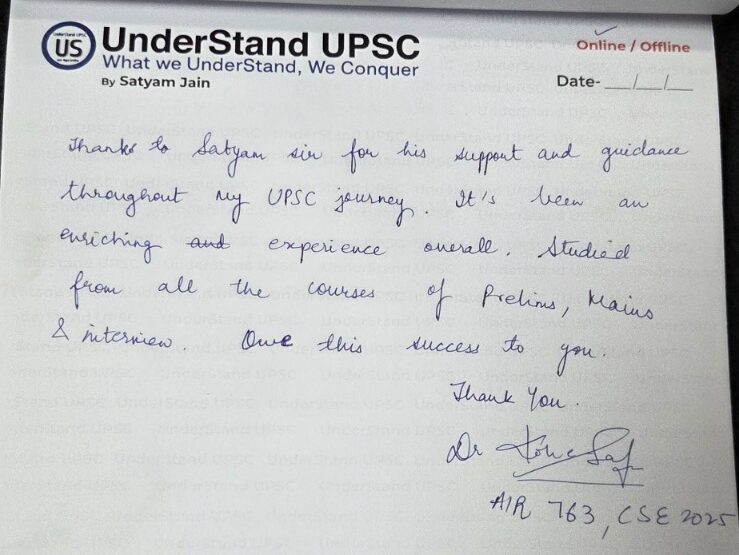 US
UnderStand UPSC
What we UnderStand, We Conquer
By Satyam Jain
Online / Offline
Date- __/__/__
Thanks to Satyam sir for his support and guidance
throughout my UPSC journey. It's been an
enriching and experience overall. Studied
from all the courses of Prelims, Mains
& interview. Owe this success to you.
Thank You.
Dr
AIR 763, CSE 2025